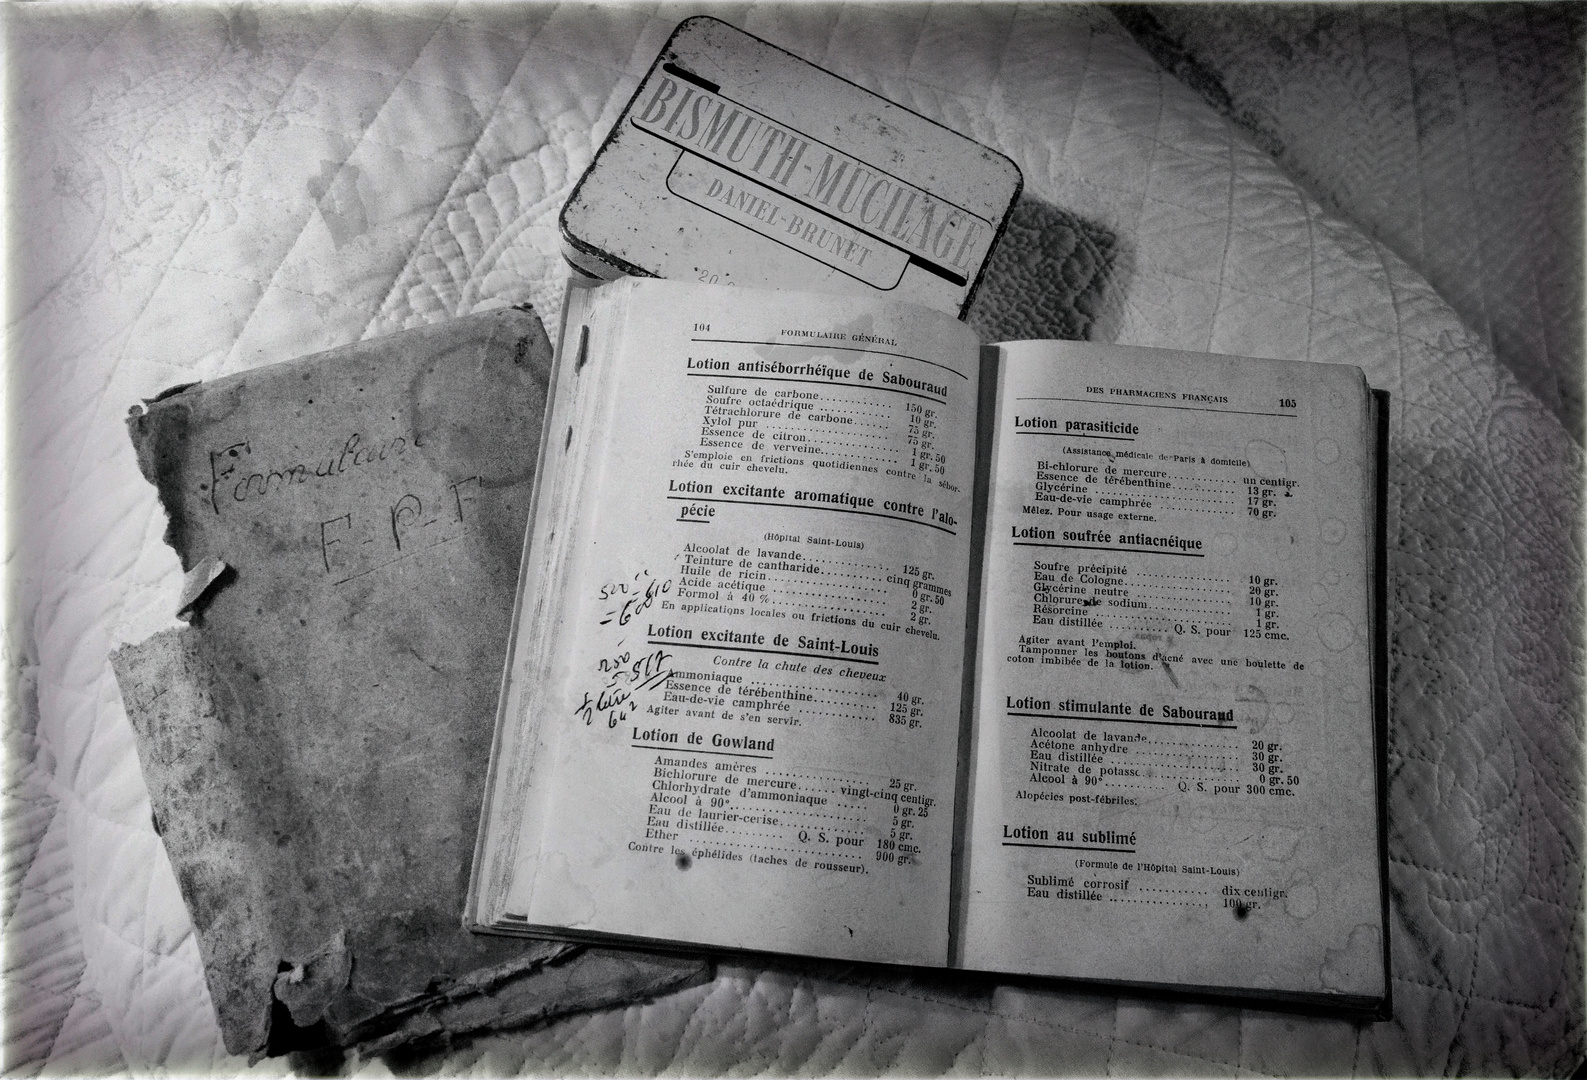 BISMUTH-MUCILAGE
DANIEL-BRUNET
20
Formulaire
F-P-F
104
FORMULAIRE GÉNÉRAL
Lotion antiséborrhéïque de Sabouraud
Sulfure de carbone.......... 150 gr.
Soufre octaédrique .......... 10 gr.
Tétrachlorure de carbone...... 75 gr.
Xylol pur .......... 75 gr.
Essence de citron.......... 1 gr. 50
Essence de verveine.......... 1 gr. 50
S'emploie en frictions quotidiennes contre la sébor-
rhée du cuir chevelu.
Lotion excitante aromatique contre l'alo-
pécie
(Hôpital Saint-Louis)
Alcoolat de lavande.......... 125 gr.
Teinture de cantharide.......... cinq grammes
Huile de ricin.......... 0 gr. 50
Acide acétique .......... 2 gr.
Formol à 40 %.......... 2 gr.
En applications locales ou frictions du cuir chevelu.
Lotion excitante de Saint-Louis
Contre la chute des cheveux
Ammoniaque .......... 40 gr.
Essence de térébenthine.......... 125 gr.
Eau-de-vie camphrée .......... 835 gr.
Agiter avant de s'en servir.
250
567
642
Lotion de Gowland
Amandes amères .......... 25 gr.
Bichlorure de mercure...... vingt-cinq centigr.
Chlorhydrate d'ammoniaque ..... 0 gr. 25
Alcool à 90°.......... 5 gr.
Eau de laurier-cerise.......... 5 gr.
Eau distillée........ Q. S. pour 180 cmc.
Ether .......... 900 gr.
Contre les éphélides (taches de rousseur).
DES PHARMACIENS FRANÇAIS
105
Lotion parasiticide
(Assistance médicale de Paris à domicile)
Bi-chlorure de mercure.......... un centigr.
Essence de térébenthine.......... 13 gr.
Glycérine .......... 17 gr.
Eau-de-vie camphrée .......... 70 gr.
Mêlez. Pour usage externe.
Lotion soufrée antiacnéique
Soufre précipité .......... 10 gr.
Eau de Cologne.......... 20 gr.
Glycérine neutre .......... 10 gr.
Chlorure de sodium.......... 1 gr.
Résorcine .......... 1 gr.
Eau distillée ........ Q. S. pour 125 cmc.
Agiter avant l'emploi.
Tamponner les boutons d'acné avec une boulette de
coton imbibée de la lotion.
Lotion stimulante de Sabouraud
Alcoolat de lavande.......... 20 gr.
Acétone anhydre .......... 30 gr.
Eau distillée .......... 30 gr.
Nitrate de potasse.......... 0 gr. 50
Alcool à 90°.......... Q. S. pour 300 cmc.
Alopécies post-fébriles.
Lotion au sublimé
(Formule de l'Hôpital Saint-Louis)
Sublimé corrosif .......... dix centigr.
Eau distillée .......... 100 gr.